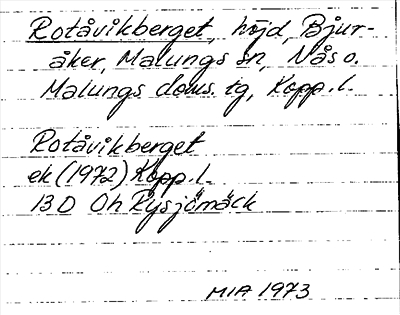 Rotåvikberget, höjd, Bjur-
åker, Malungs sn, Nås o.
Malungs doms. tg, Kopp. l.
Rotåvikberget
ek (1972) Kopp. l.
13 D Oh Rysjömäck
MIA 1973